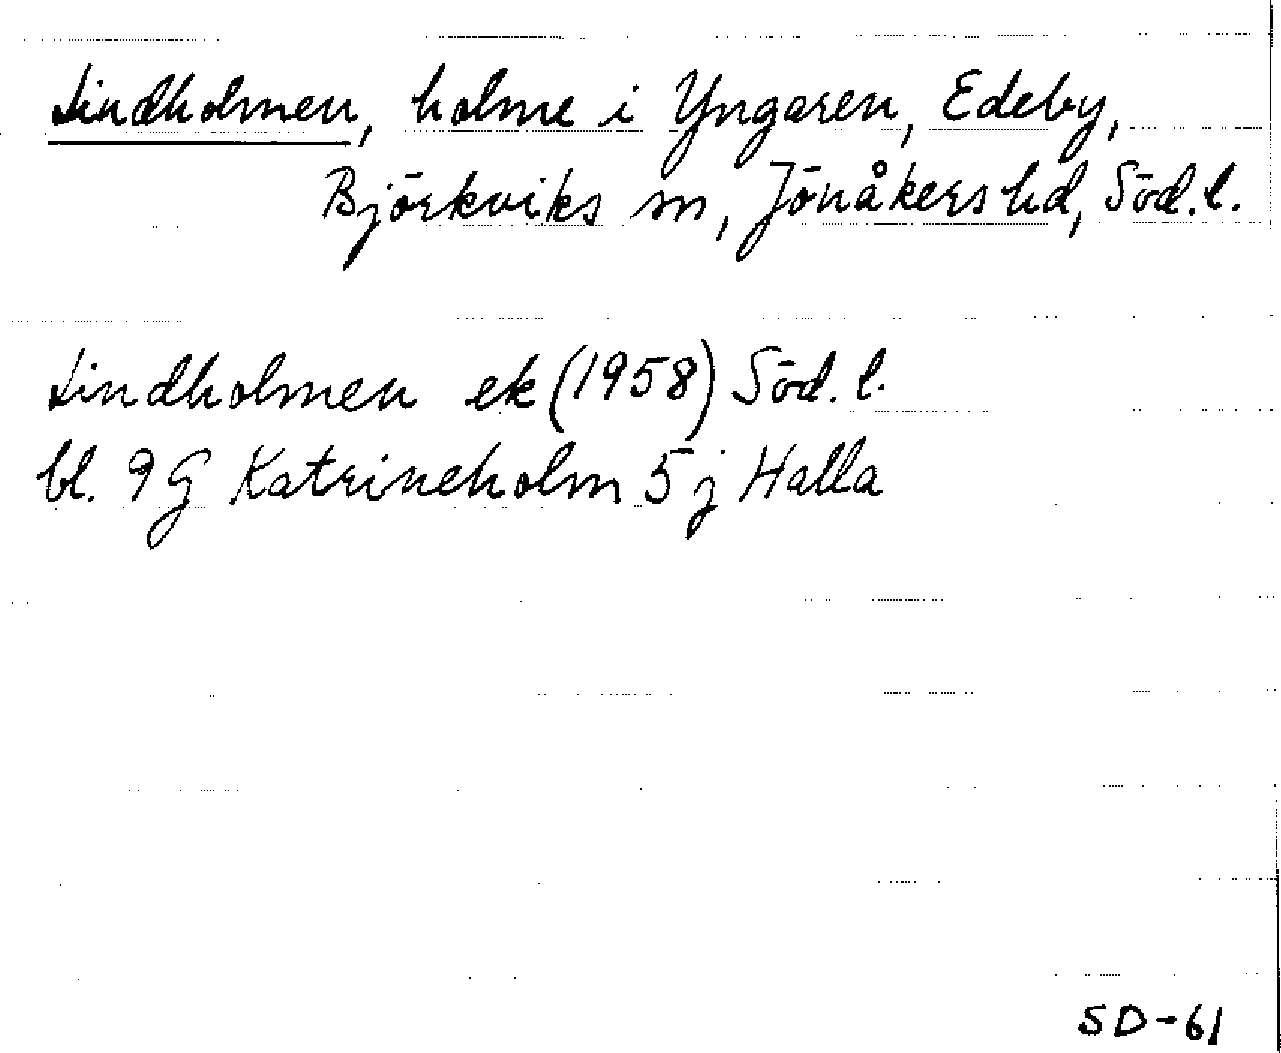 Lindholmen, holme i Yngaren, Edeby,
Björkviks sn, Jönåkers hd, Söd. l.
Lindholmen ek (1958) Söd. l.
bl. 9 G Katrineholm 5 j Halla
SD-61